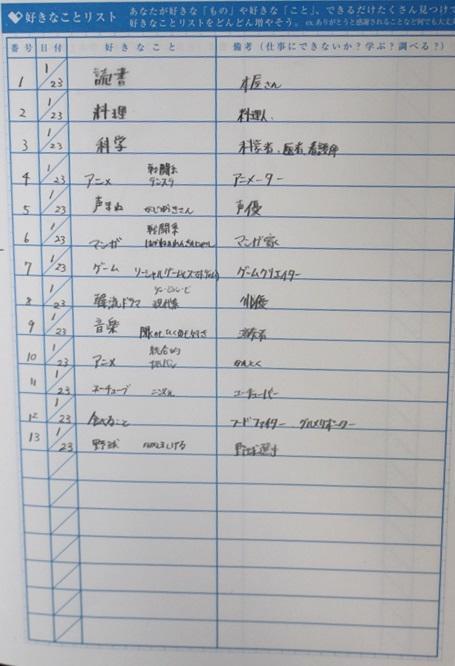 好きなことリスト
あなたが好きな「もの」や好きな「こと」、できるだけたくさん見つけて
好きなことリストをどんどん増やそう。 ex.ありがとうと感謝されることなど何でも大丈夫
番号 日付 好きなこと 備考(仕事にできないか?学ぶ?調べる?)
1 1/23 読書 本屋さん
2 1/23 料理 料理人
3 1/23 科学 科学者、医者、看護師
4 1/23 アニメ 戦闘系 アニメーター
5 1/23 声まね 声優
6 1/23 マンガ 戦闘系 マンガ家
7 1/23 ゲーム ゲームクリエイター
8 1/23 韓流ドラマ 俳優
9 1/23 音楽
10 1/23 アニメ かんとく
11 1/23 ユーチューブ ユーチューバー
12 1/23 食べること フードファイター グルメリポーター
13 1/23 野球 野球選手